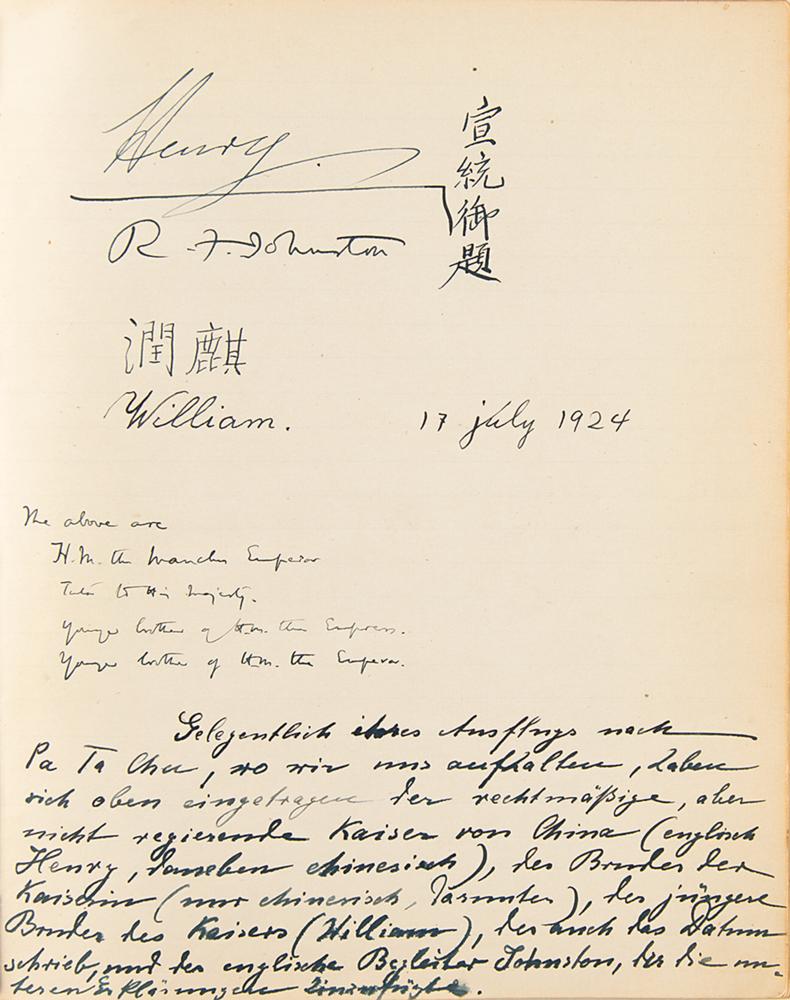 Henry.
宣統御題
R. F. Johnston
潤麒
William.
17 july 1924
The above are
H.M. the Manchu Emperor
Tutor to His Majesty.
Younger brother of H.M. the Empress.
Younger brother of H.M. the Emperor.
Gelegentlich ihres Ausflugs nach
Pa Ta Chu, wo wir uns aufhalten, haben
sich oben eingetragen der rechtmäßige, aber
nicht regierende Kaiser von China (englisch
Henry, daneben chinesisch), der Bruder der
Kaiserin (nur chinesisch, darunter), der jüngere
Bruder des Kaisers (William), der auch das Datum
schrieb, und der englische Begleiter Johnston, der die un-
teren Erklärungen hinzufügte.